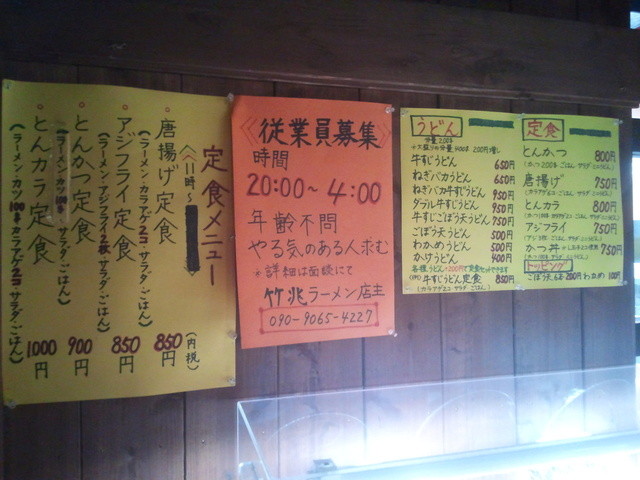 定食メニュー
《11時〜
唐揚げ定食
850円(内税)
(ラーメン・カラアゲ2コ サラダ・ごはん)
アジフライ定食
850円
(ラーメン・アジフライ2枚 サラダ・ごはん)
とんかつ定食
900円
(ラーメン カツ100g サラダ・ごはん)
とんカラ定食
1000円
(ラーメン・カツ100g カラアゲ2コ サラダ・ごはん)
《従業員募集》
時間
20:00〜4:00
年齢不問
やる気のある人求む
*詳細は面接にて
竹兆ラーメン店主
090-9065-4227
うどん
牛すじうどん 650円
ねぎバカうどん 650円
ねぎバカ牛すじうどん 950円
ダブル牛すじうどん 950円
牛すじごぼう天うどん 750円
ごぼう天うどん 500円
わかめうどん 500円
かけうどん 400円
各種うどん+200円で定食セットできます
牛すじうどん定食 850円
(カラアゲ2コ サラダ ごはん)
定食
とんかつ 800円
唐揚げ 750円
とんカラ 800円
アジフライ 750円
かつ丼 750円
トッピング
ごぼう天 200円 わかめ 100円